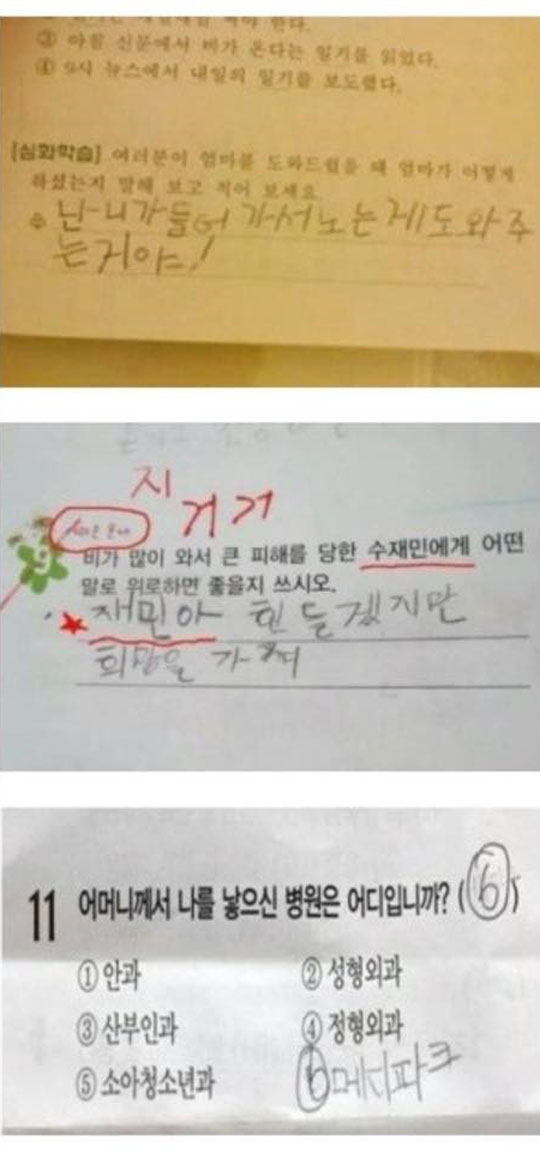 ③ 아침 신문에서 비가 온다는 일기를 읽었다.
④ 9시 뉴스에서 내일의 일기를 보도했다.
[심화학습] 여러분이 엄마를 도와드렸을 때 엄마가 어떻게
하셨는지 말해 보고 적어 보세요
넌 니가 들어가서 노는게 도와주
는거야!
지
거거
비가 많이 와서 큰 피해를 당한 수재민에게 어떤
말로 위로하면 좋을지 쓰시오.
재민아 힌들겠지만
희망을 가져
11 어머니께서 나를 낳으신 병원은 어디입니까? (6)
① 안과 ② 성형외과
③ 산부인과 ④ 정형외과
⑤ 소아청소년과 ⑥ 메디파크